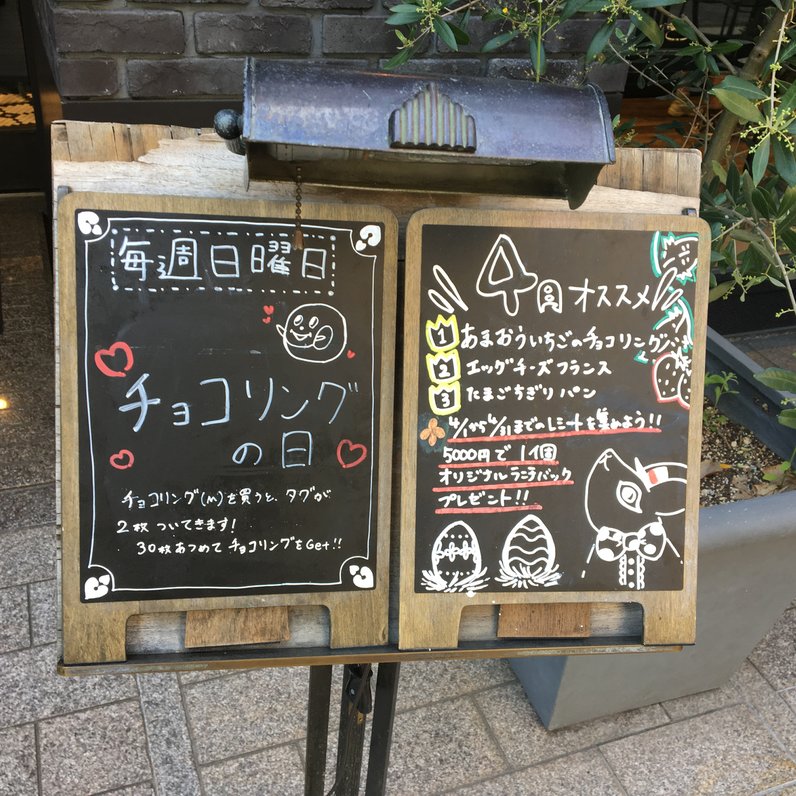 毎週日曜日
チョコリング
の日
チョコリング(M)を買うと、タグが
2枚ついてきます!
30枚あつめてチョコリングをGet!!
4月オススメ
1 あまおういちごのチョコリング
2 エッグチーズフランス
3 たまごちぎりパン
4/1から4/31までのレシートを集めよう!!
5000円で1個
オリジナルランチバック
プレゼント!!